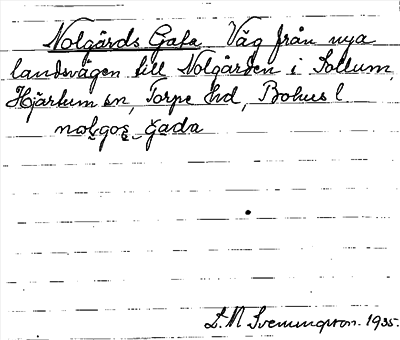 Nolgårds Gata. Väg från nya
landsvägen till Nolgården i Sollum,
Hjärtum sn, Torpe hd, Bohus l
nolgos gada
D. N Svenningsson. 1935.